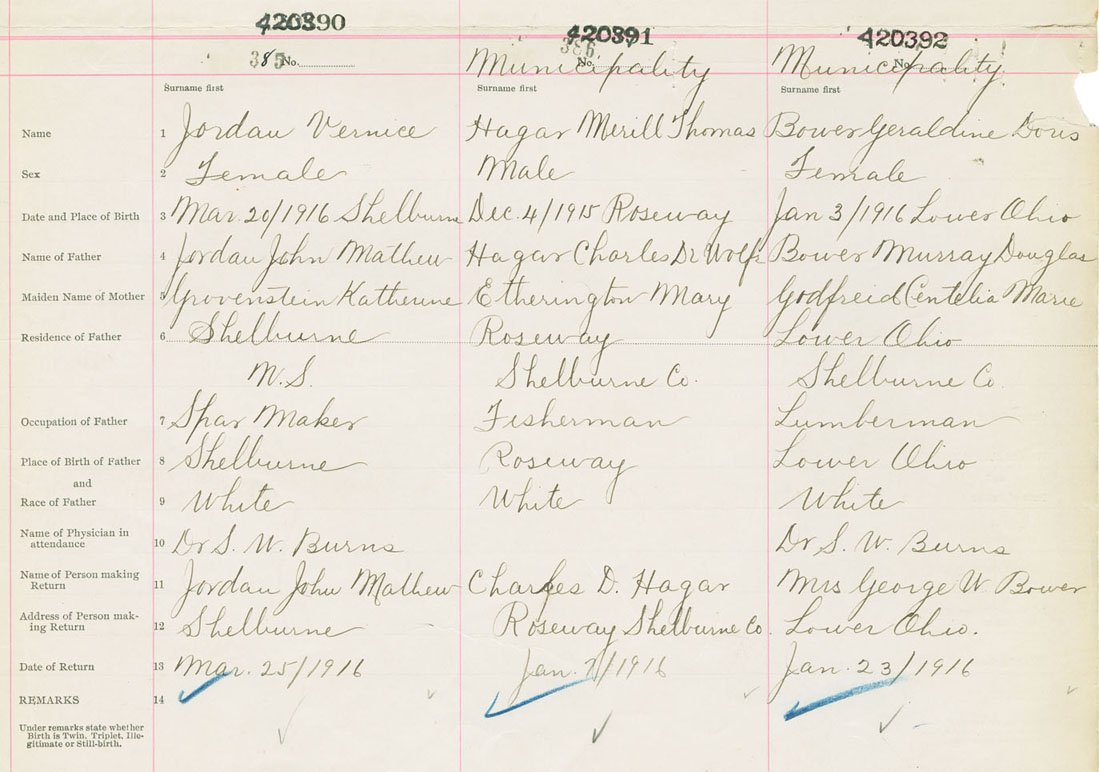 420390 420391 420392
385 No. 386 No. No.
Municipality Municipality
Surname first Surname first Surname first
Name 1 Jordan Vernice Hagar Merill Thomas Bower Geraldine Doris
Sex 2 Female Male Female
Date and Place of Birth 3 Mar. 20/1916 Shelburne Dec. 4/1915 Roseway Jan 3/1916 Lower Ohio
Name of Father 4 Jordan John Mathew Hagar Charles De Wolfe Bower Murray Douglas
Maiden Name of Mother 5 Grovenstein Katherine Etherington Mary Godfreid Centelia Marie
Residence of Father 6 Shelburne Roseway Lower Ohio
N.S. Shelburne Co. Shelburne Co.
Occupation of Father 7 Spar Maker Fisherman Lumberman
Place of Birth of Father 8 Shelburne Roseway Lower Ohio
and
Race of Father 9 White White White
Name of Physician in
attendance 10 Dr S. W. Burns Dr S. W. Burns
Name of Person making
Return 11 Jordan John Mathew Charles D. Hagar Mrs George W. Bower
Address of Person mak-
ing Return 12 Shelburne Roseway Shelburne Co. Lower Ohio.
Date of Return 13 Mar. 25/1916 Jan. 7/1916 Jan. 23/1916
REMARKS 14
Under remarks state whether
Birth is Twin, Triplet, Ille-
gitimate or Still-birth.